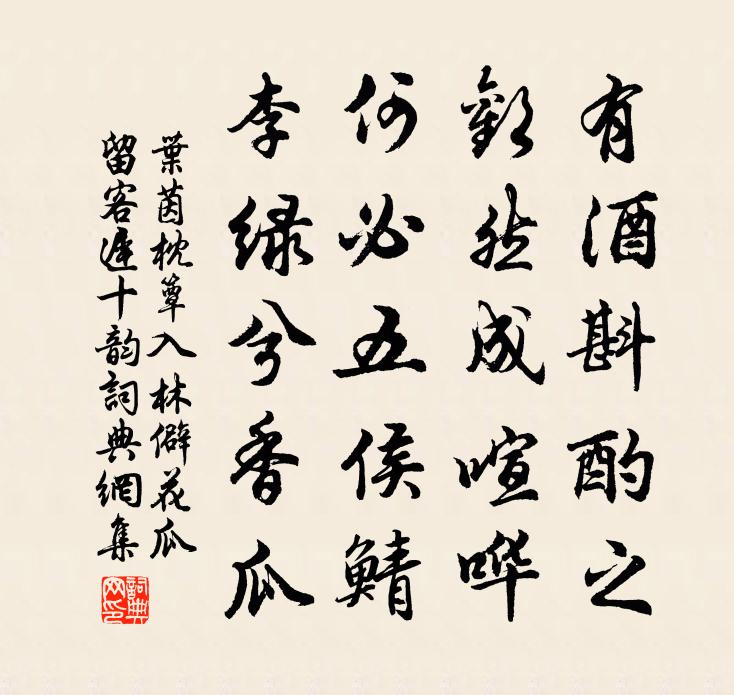 有酒斟酌之
歡然成喧哗
何必五侯鯖
李绿兮香瓜
葉茵枕簟入林僻茶瓜
留客遲十韵詞典網集
詞典网印